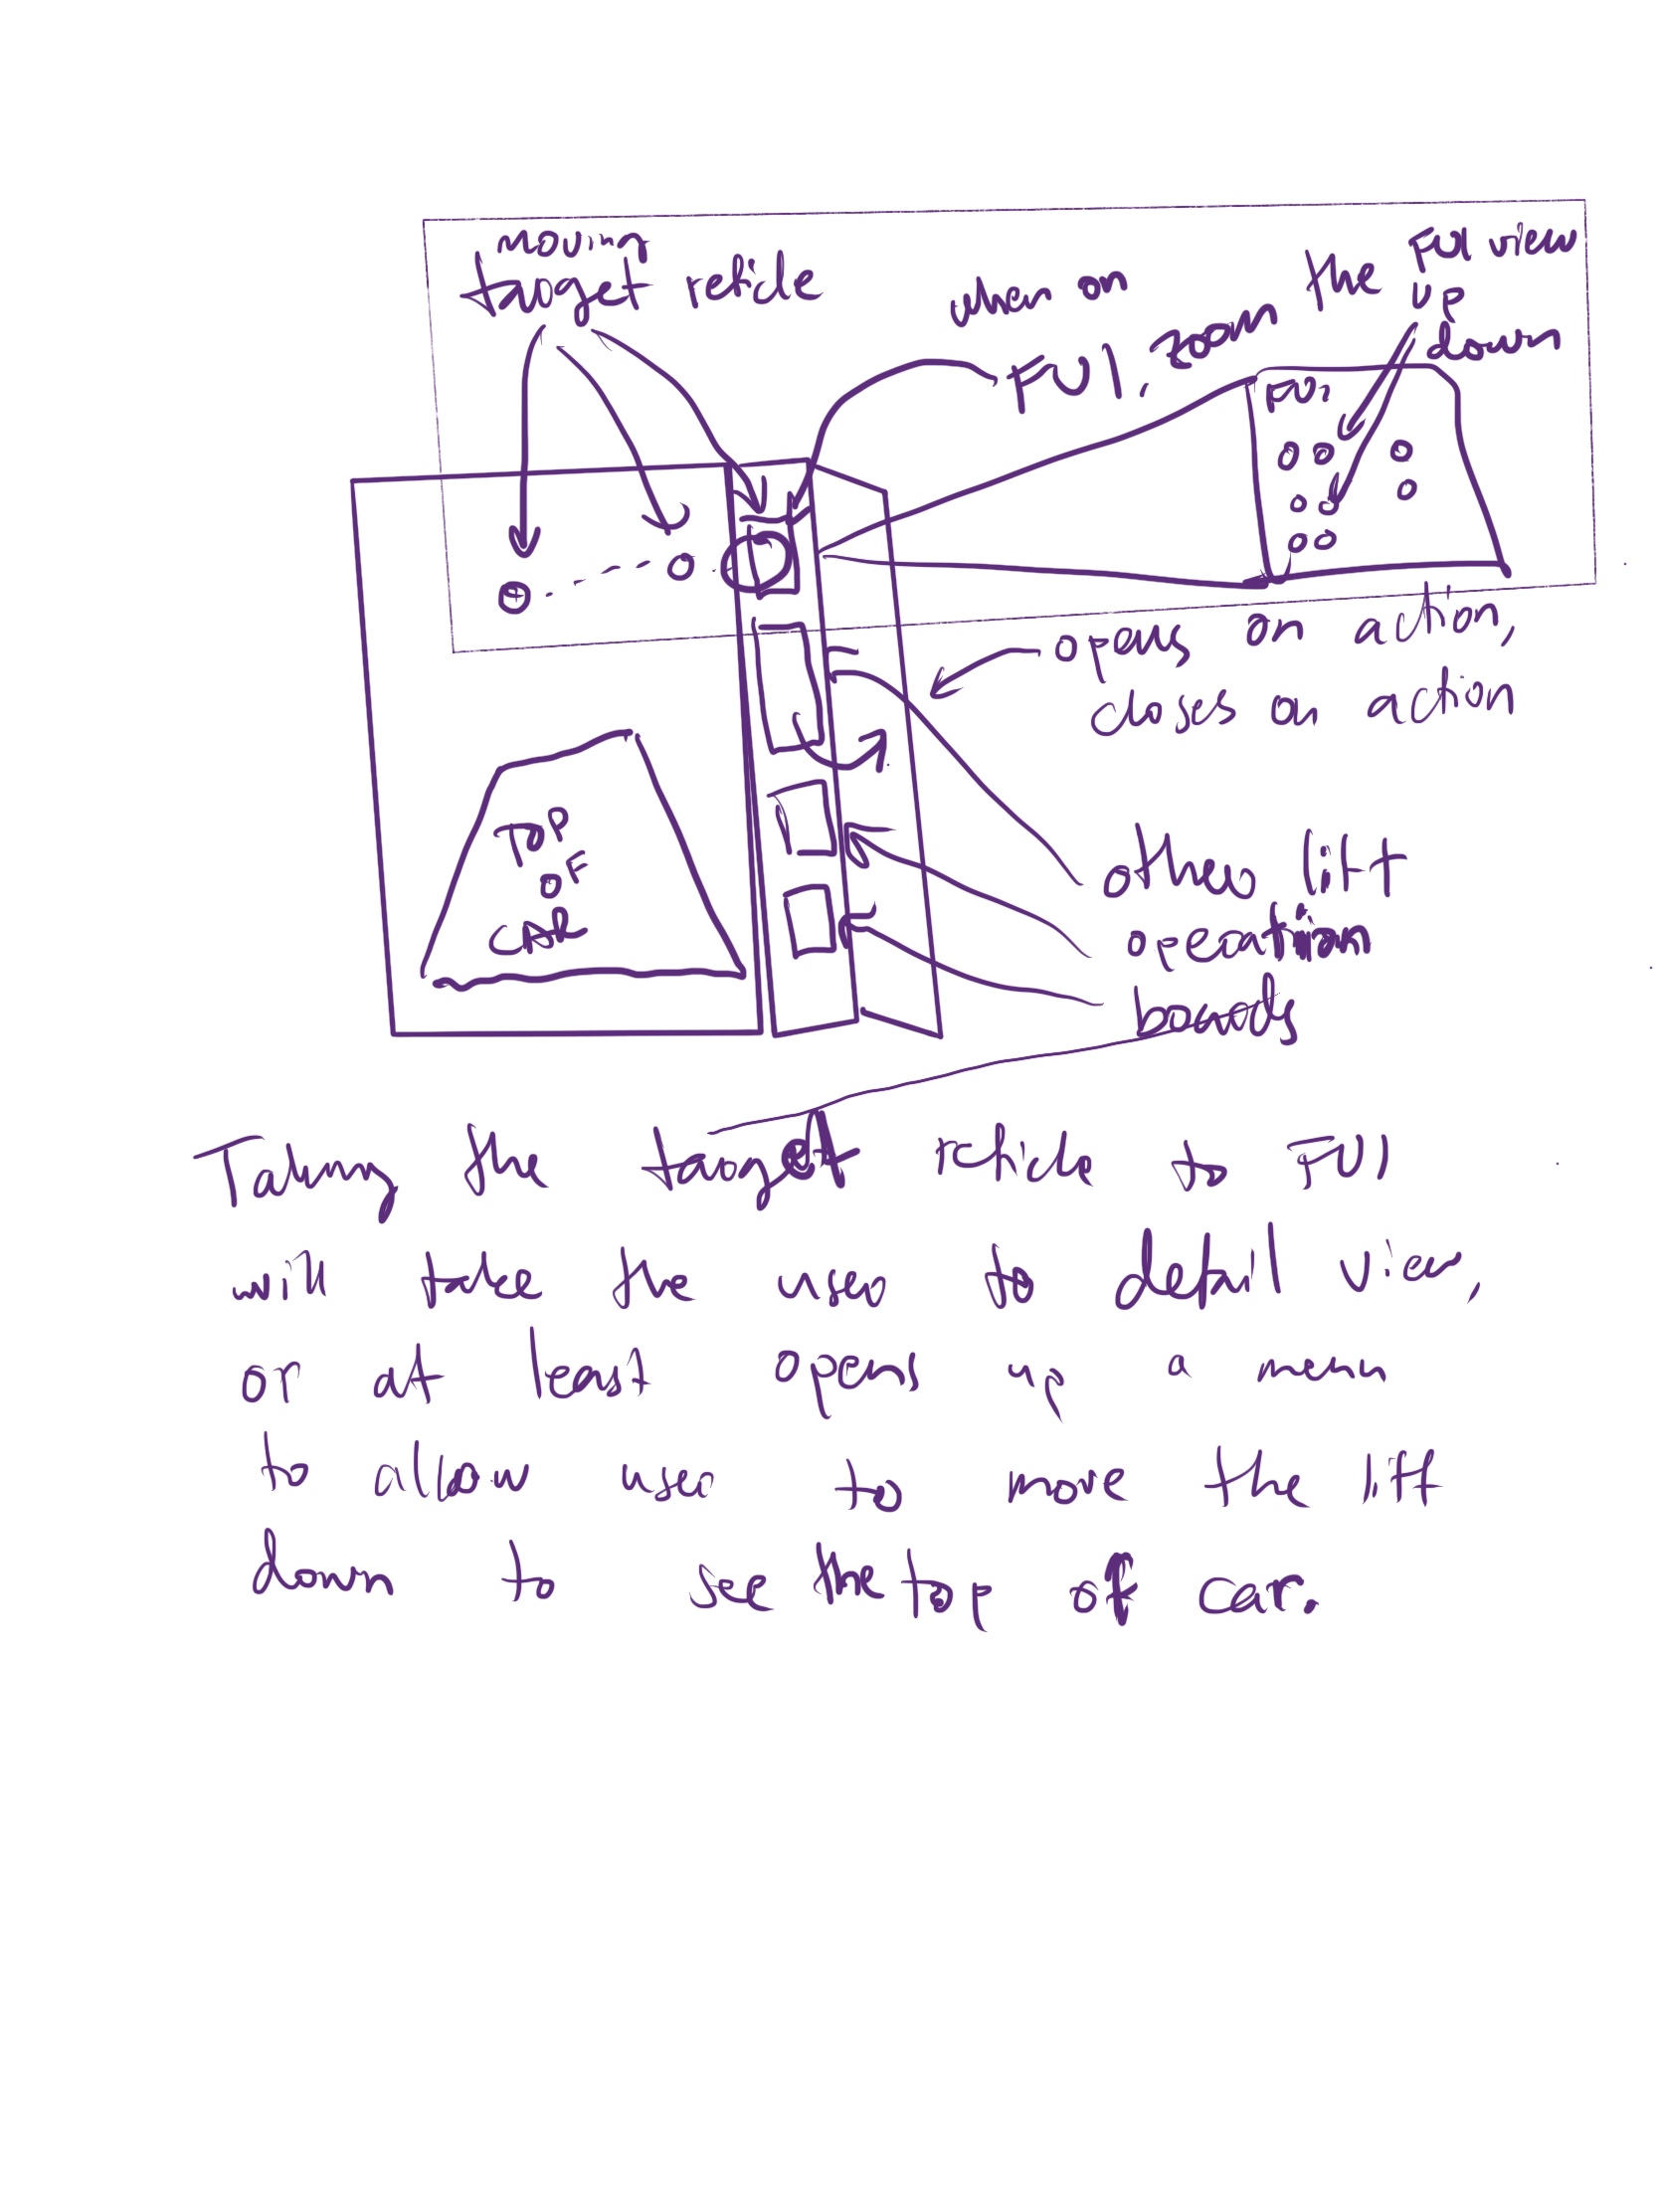 moving
target reticle
when on
FUI, zoom the FUI view
UP
down
FUI
opens on action,
closes on action
TOP
OF
CAR
other lift
operation
boards
Taking the target reticle to FUI
will take the user to detail view,
or at least opens up a menu
to allow user to move the lift
down to see the top of car.